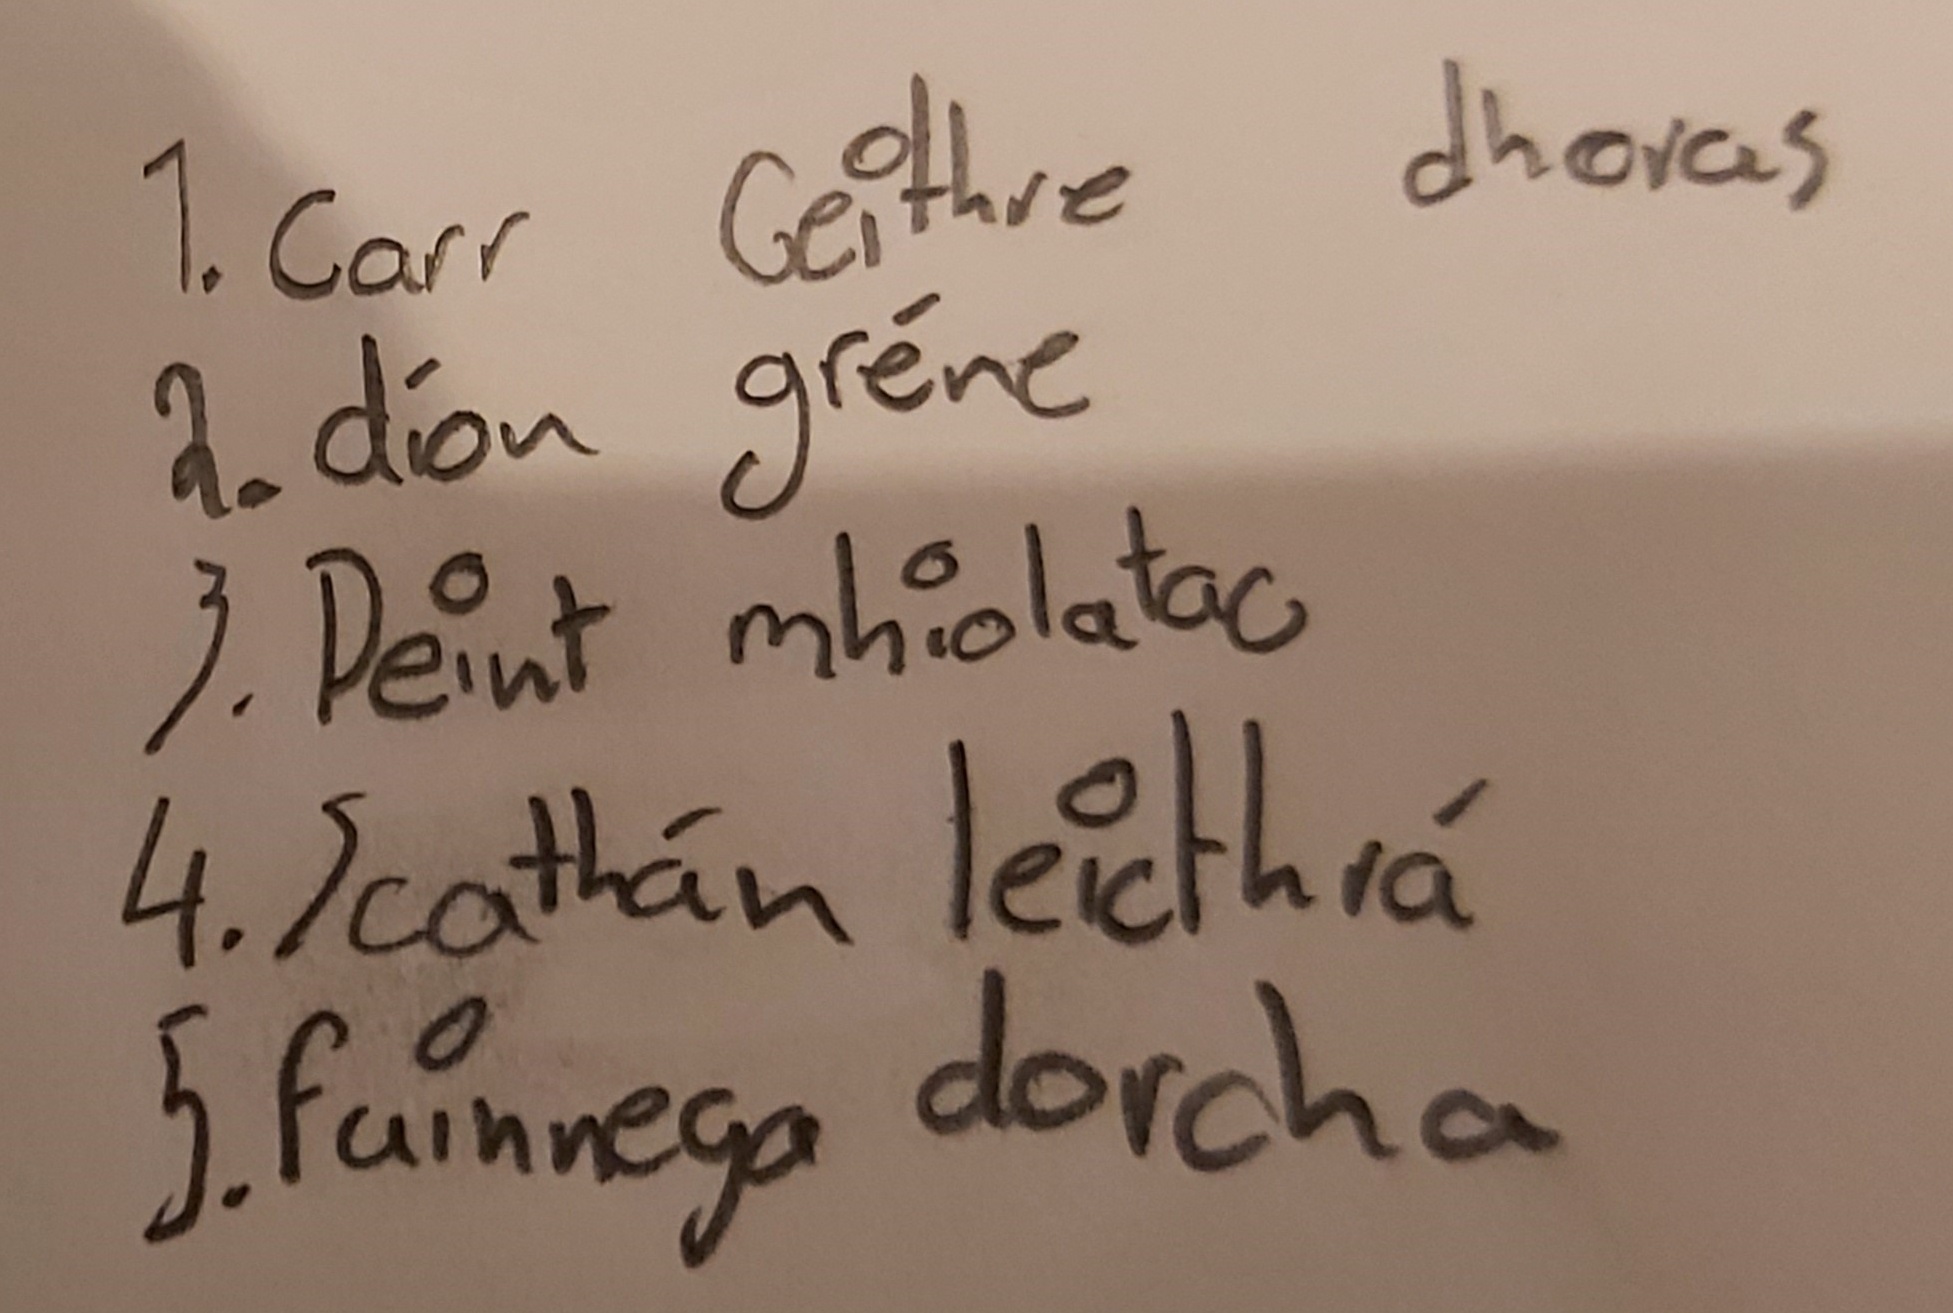 1. Carr Ceithre dhoras
2. díon gréne
3. Peint mhiolatac
4. Scathán leicthrá
5. fuinnega dorcha